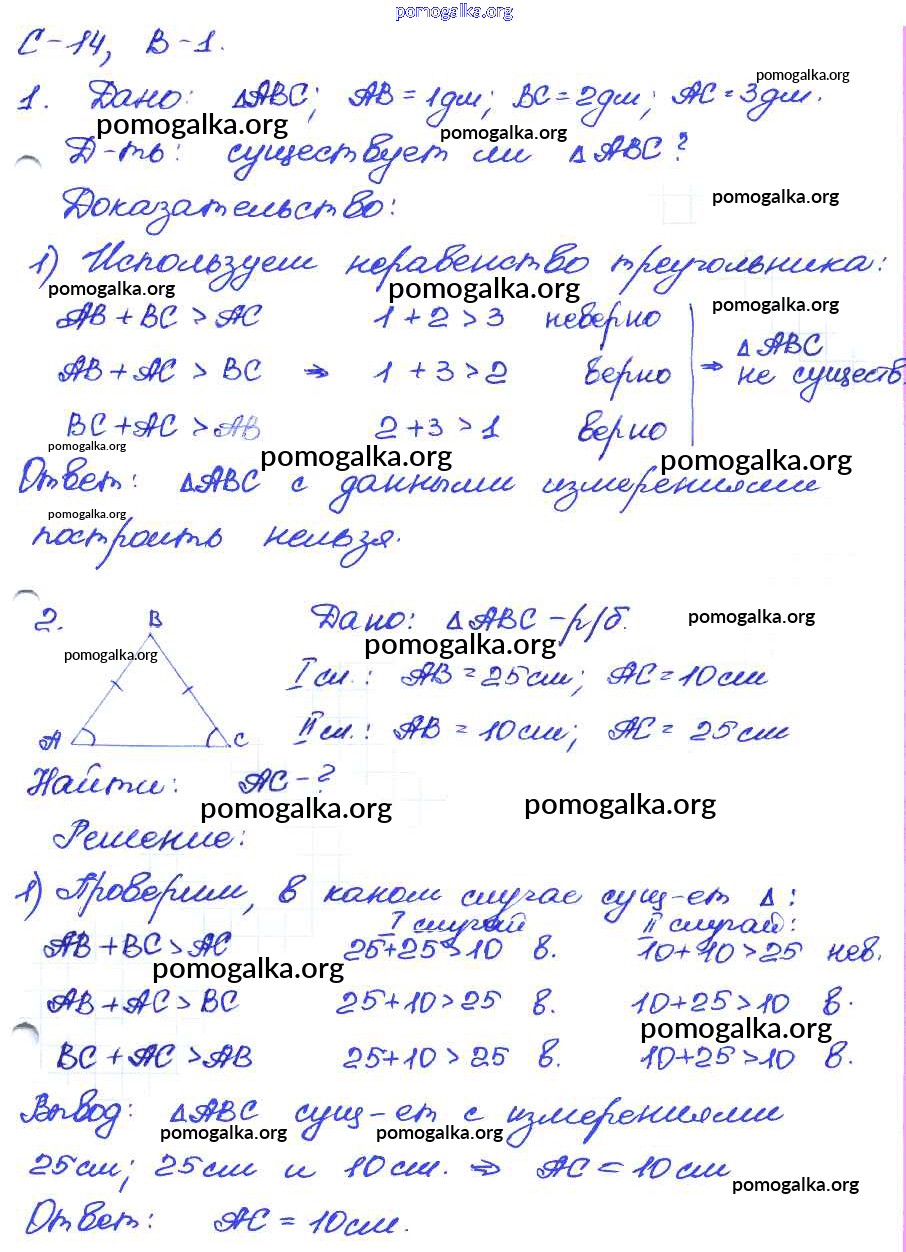 pomogalka.org
С-14, В-1.
pomogalka.org
1. Дано: ΔABC; AB = 1дм; BC = 2дм; AC = 3дм.
pomogalka.org pomogalka.org
Д-ть: существует ли ΔABC?
pomogalka.org
Доказательство:
1) Используем неравенство треугольника:
pomogalka.org pomogalka.org pomogalka.org
AB + BC > AC 1 + 2 > 3 неверно
AB + AC > BC ⇒ 1 + 3 > 2 верно ⇒ ΔABC не существ.
BC + AC > AB 2 + 3 > 1 верно
pomogalka.org pomogalka.org pomogalka.org
Ответ: ΔABC с данными измерениями
pomogalka.org
построить нельзя.
2. B Дано: ΔABC – р/б.
pomogalka.org pomogalka.org pomogalka.org
I сл.: AB = 25см; AC = 10см
A C II сл.: AB = 10см; AC = 25см
Найти: AC - ?
pomogalka.org pomogalka.org
Решение:
1) Проверим, в каком случае сущ-ет Δ:
I случай II случай:
AB + BC > AC 25+25 > 10 в. 10+10 > 25 нев.
pomogalka.org
AB + AC > BC 25+10 > 25 в. 10+25 > 10 в.
pomogalka.org
BC + AC > AB 25+10 > 25 в. 10+25 > 10 в.
Вывод: ΔABC сущ-ет с измерениями
pomogalka.org pomogalka.org
25см; 25см и 10см. ⇒ AC = 10см
pomogalka.org
Ответ: AC = 10см.